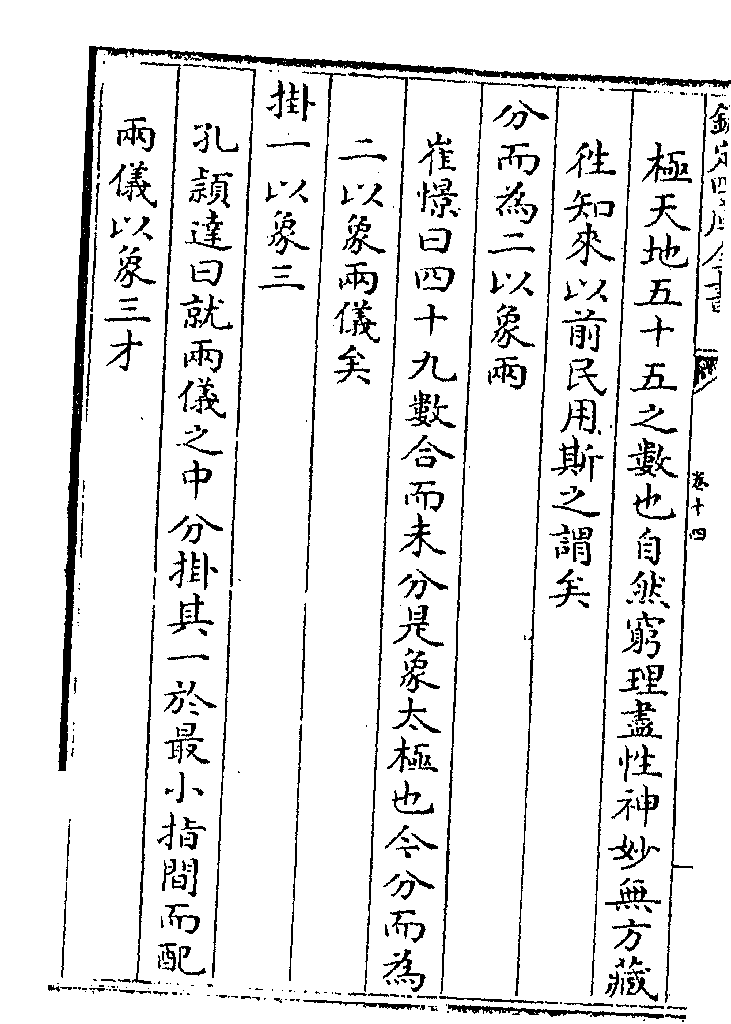 欽定四庫全書
卷十四
極天地五十五之數也自然窮理盡性神妙無方藏
徃知來以前民用斯之謂矣
分而為二以象兩
崔憬曰四十九數合而未分是象太極也今分而為
二以象兩儀矣
掛一以象三
孔穎達曰就兩儀之中分掛其一於最小指間而配
兩儀以象三才